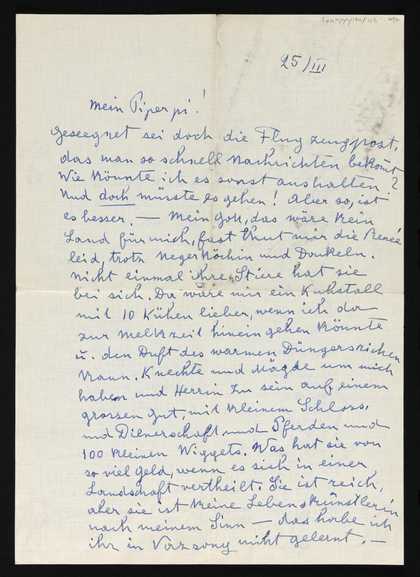 25/III
Mein Piperpi!
Geseegnet sei doch die Flugzeugpost,
das man so schnell Nachrichten bekömt
Wie könnte ich es sonst aushalten?
Und doch müsste es gehen! Aber so, ist
es besser. — Mein Gott, das wäre kein
Land für mich, fast thut mir die Renée
leid, trotz Negerköchin und Dunkeln.
Nicht einmal ihre Stiere hat sie
bei sich. Da wäre mir ein Kuhstall
mit 10 Kühen lieber, wenn ich da
zur Melkzeit hinein gehen könnte
u. den Duft des warmen Düngers riechen
kann. Knechte und Mägde um mich
haben und Herrin zu sein auf einem
grossen Gut, mit kleinem Schloss,
und Dienerschaft und Pferden und
100 kleinen Wiggets. Was hat sie von
so viel Geld, wenn es sich in einer
Landschaft vertheilt. Sie ist reich,
aber sie ist keine Lebenskünstlerin
nach meinem Sinn — das habe ich
ihr in Vorzong nicht gelernt. —